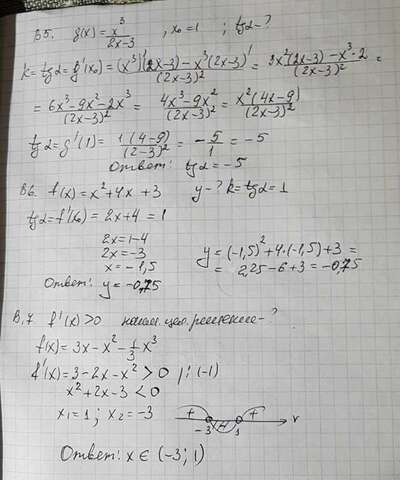 В5. g(x) = x³/(2x-3) , x₀ = 1 ; tgα - ?
k = tgα = g'(x₀) = ((x³)'(2x-3) - x³(2x-3)')/(2x-3)² = (3x²(2x-3) - x³·2)/(2x-3)² =
= (6x³-9x²-2x³)/(2x-3)² = (4x³-9x²)/(2x-3)² = x²(4x-9)/(2x-3)²
tgα = g'(1) = 1(4-9)/(2-3)² = -5/1 = -5
Ответ: tgα = -5
В6. f(x) = x²+4x+3 y - ? k = tgα = 1
tgα = f'(x₀) = 2x+4 = 1
2x = 1-4
2x = -3
x = -1,5
y = (-1,5)² + 4·(-1,5) + 3 =
= 2,25 - 6 + 3 = -0,75
Ответ: y = -0,75
В.7 f'(x) > 0 цел. решение - ?
f(x) = 3x - x² - 1/3 x³
f'(x) = 3 - 2x - x² > 0 /: (-1)
x² + 2x - 3 < 0
x₁ = 1 ; x₂ = -3
+ - +
-3 1 x
Ответ: x ∈ (-3; 1)